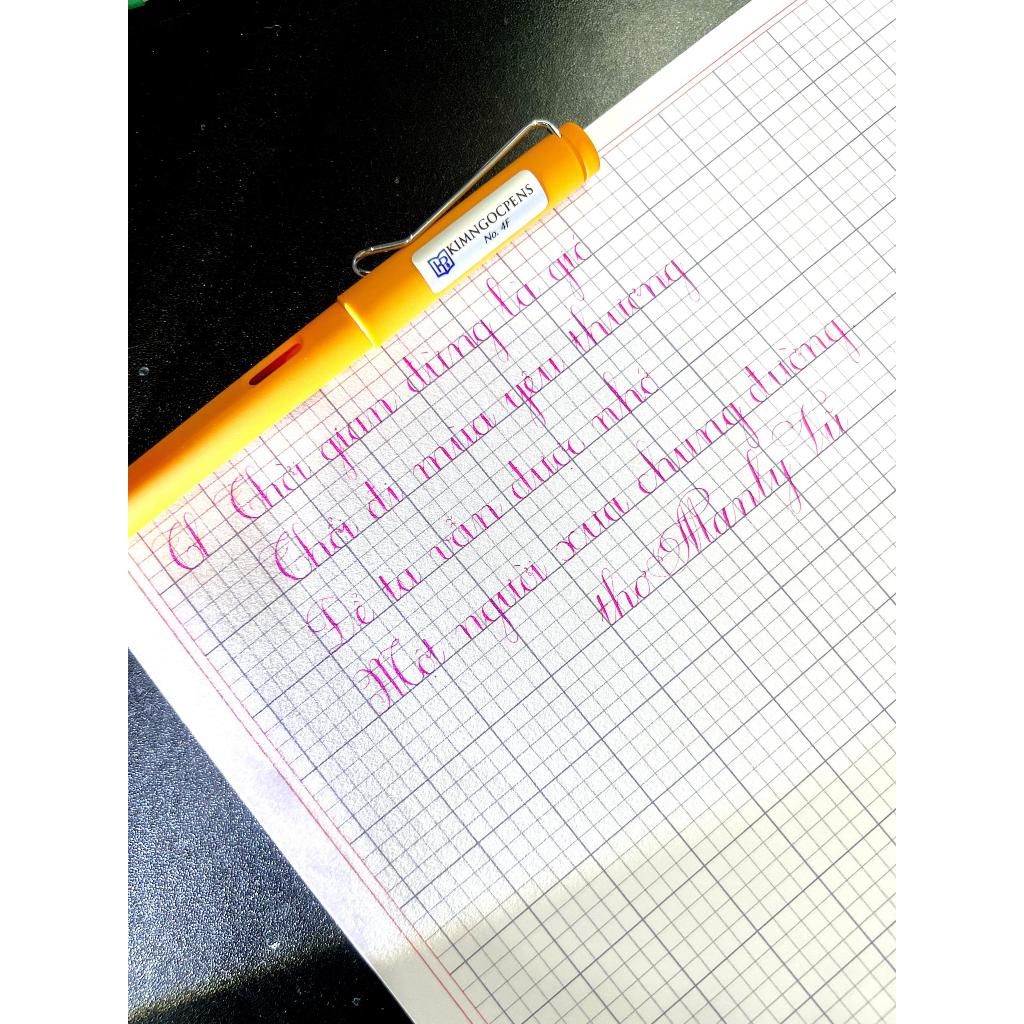 KIMNGOCPENS
No. 4F
Ơi Thời gian đừng là gió
Thổi đi mùa yêu thương
Để ta vẫn được nhớ
Một người xưa chung đường
thơ Manly